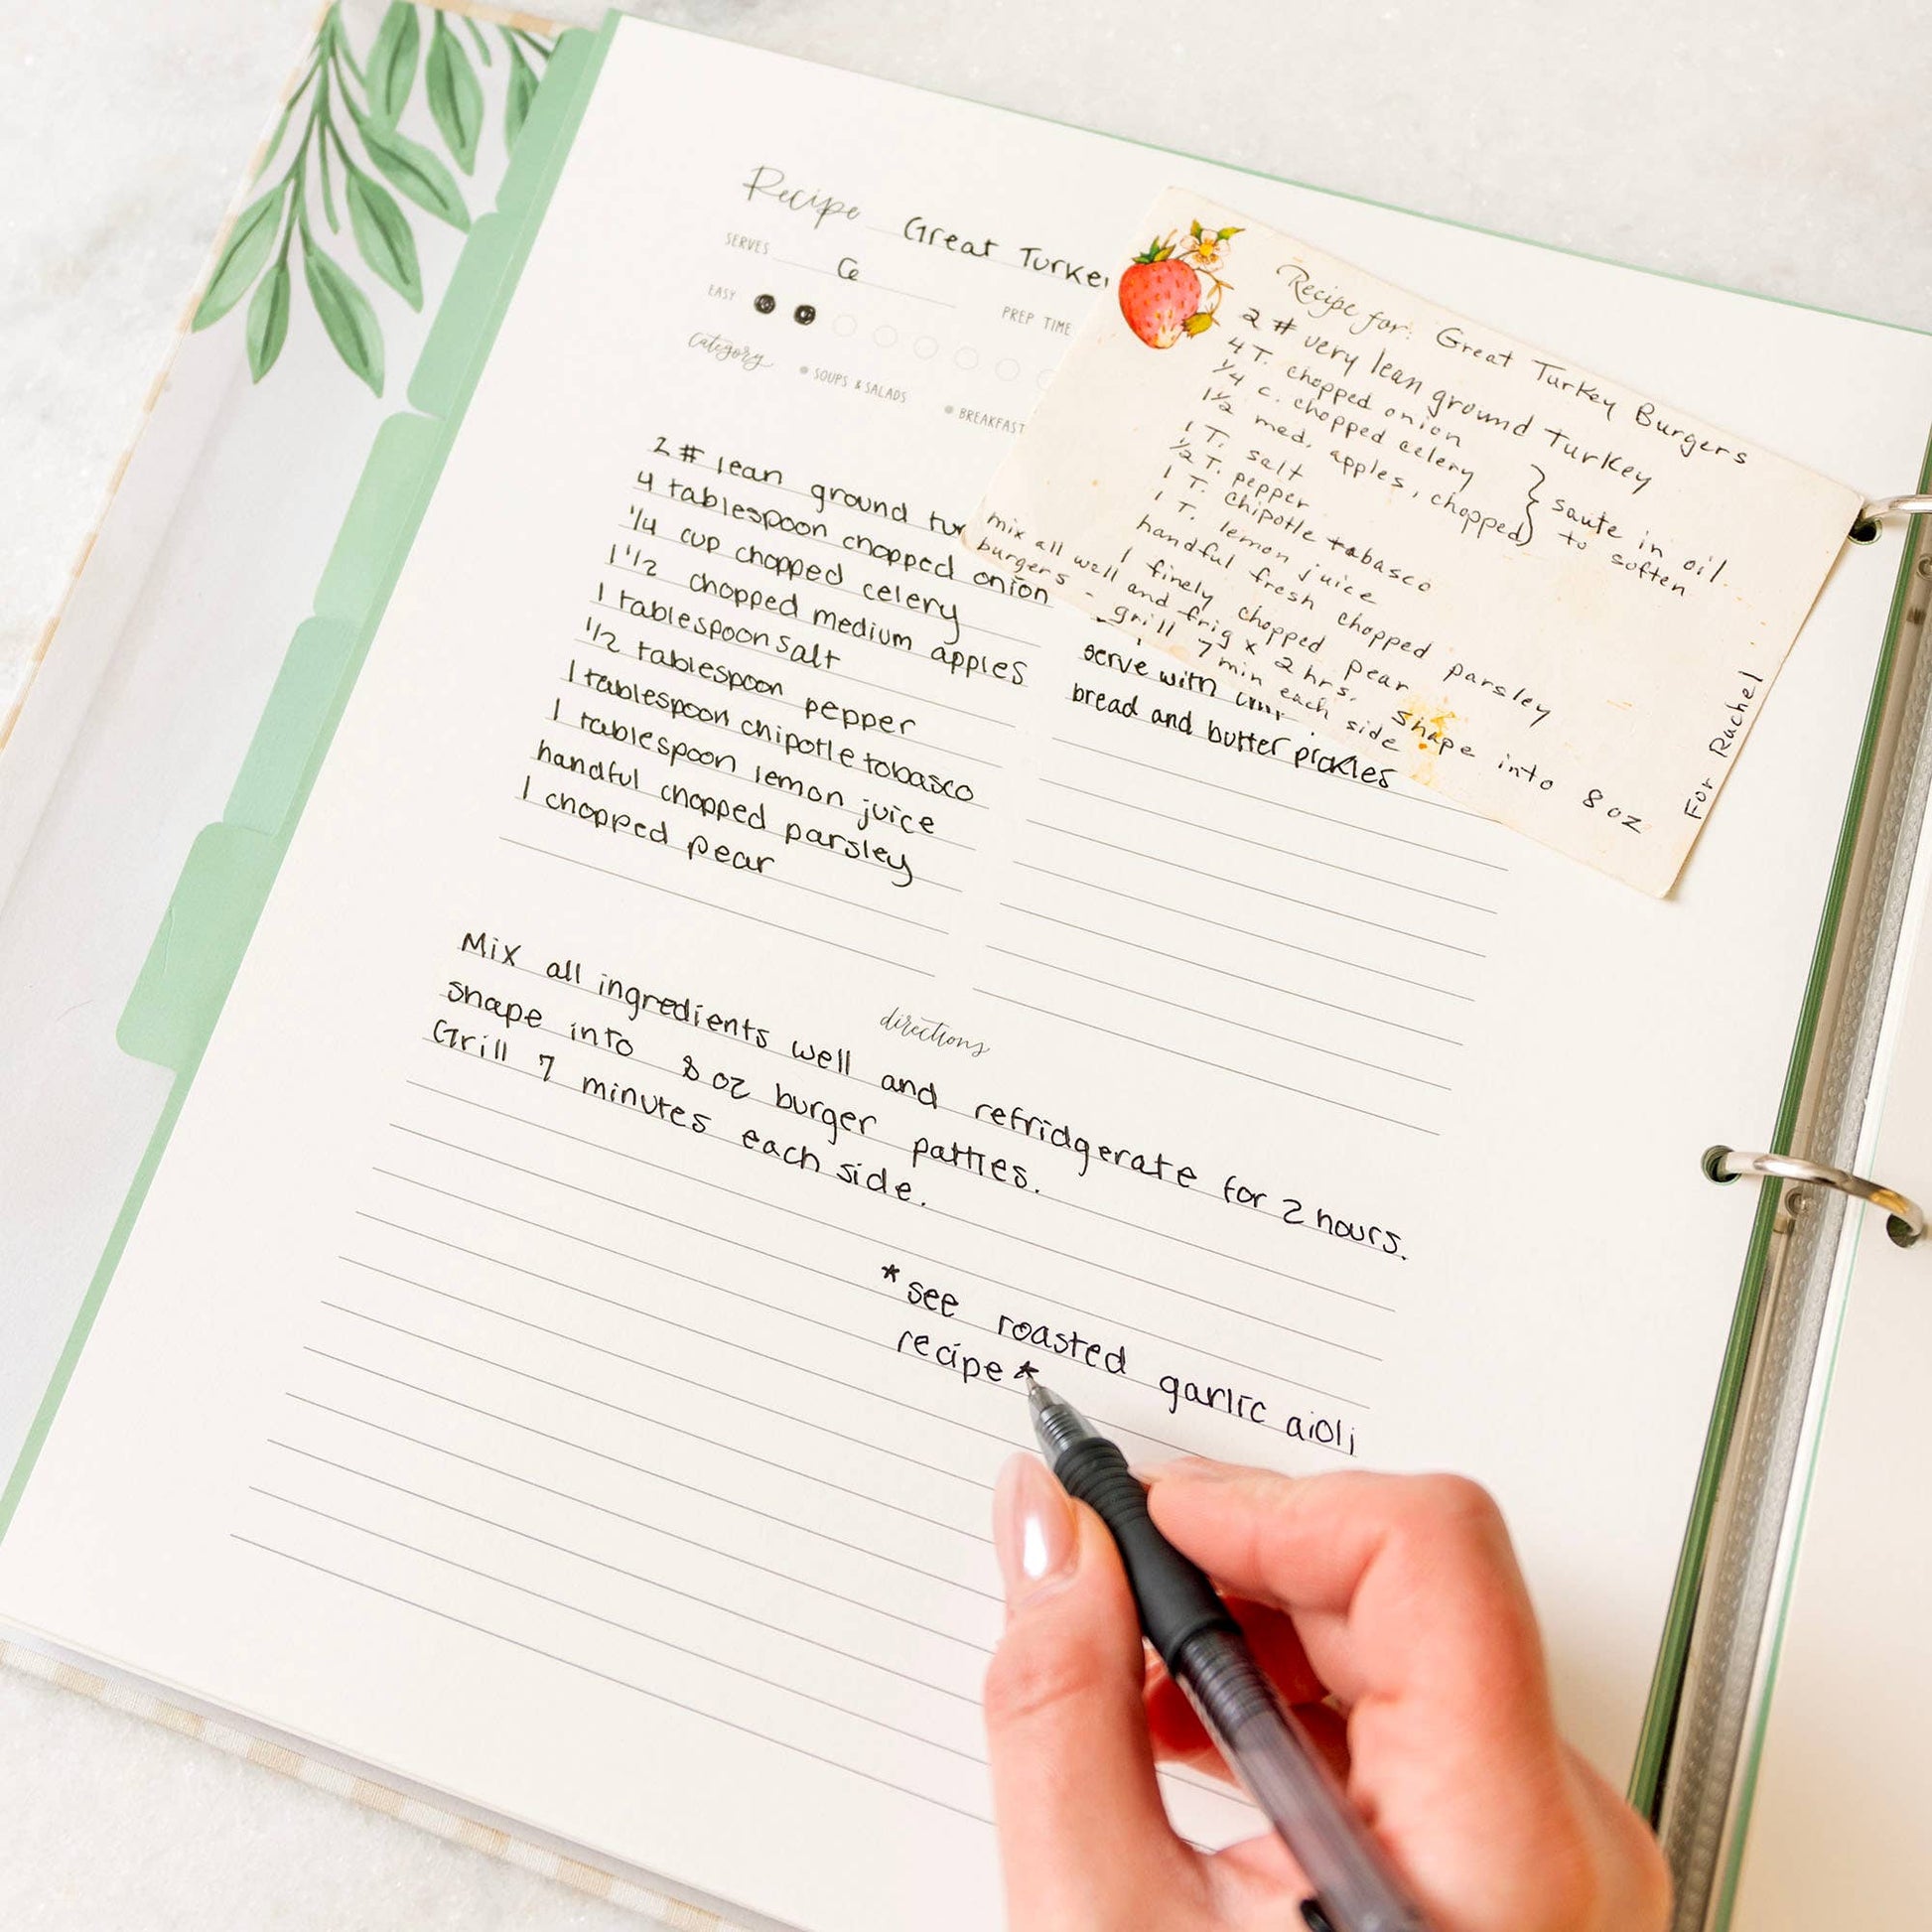 Recipe Great Turke
SERVES 6
EASY
PREP TIME
category SOUPS & SALADS BREAKFAST
2 # lean ground
4 tablespoon chopped onion
1/4 cup chopped celery
1 1/2 chopped medium apples
1 tablespoon salt
1/2 tablespoon pepper
1 tablespoon chipotle tobasco
1 tablespoon lemon juice
handful chopped parsley
1 chopped pear
serve with
bread and butter pickles
directions
Mix all ingredients well and refridgerate for 2 hours.
shape into 8 oz burger patties.
Grill 7 minutes each side.
*see roasted garlic aioli
recipe*
Recipe for: Great Turkey Burgers
2 # very lean ground turkey
4 T. chopped onion
1/4 c. chopped celery
1 1/2 med. apples, chopped
} saute in oil
to soften
1 T. salt
1/2 T. pepper
1 T. chipotle tabasco
1 T. lemon juice
handful fresh chopped parsley
1 finely chopped pear
mix all well and frig x 2 hrs. shape into 8 oz
burgers - grill 7 min each side
For Rachel